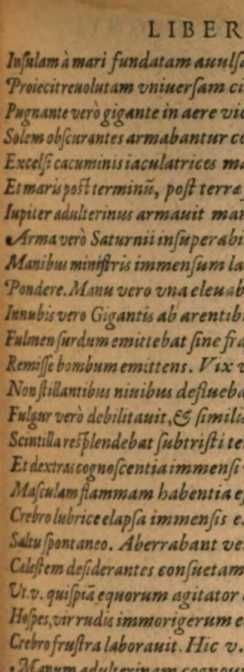 LIBER
Inſulam à mari fundatam auulſ
Proiecit reuolutam vniuerſam ci
Pugnante verò gigante in aere vic
Solem obſcurantes armabantur co
Excelſi cacuminis iaculatrices ma
Et maris poſt terminũ, poſt terra
Iupiter adulterinus armauit man
Arma verò Saturnii inſuperabi
Manibus miniſtris immenſum la
Pondere. Manu vero vna eleuab
Innubis vero Gigantis ab arentib
Fulmen ſurdum emittebat ſine fra
Remiſſe bombum emittens. Vix v
Non ſtillantibus niuibus deflueba
Fulgur verò debilitauit, & ſimili
Scintilla reſplendebat ſubtriſti te
Et dextras cognoſcentia immenſi
Maſculam flammam habentia e
Crebro lubrice elapſa immenſis e
Saltu ſpontaneo. Aberrabant ve
Cæleſtem deſiderantes conſuetam
Ut.v. quiſpiã equorum agitator
Hoſpes, vir rudis immorigerum e
Crebro fruſtra laborauit. Hic v.
Manum adulterinam cognou